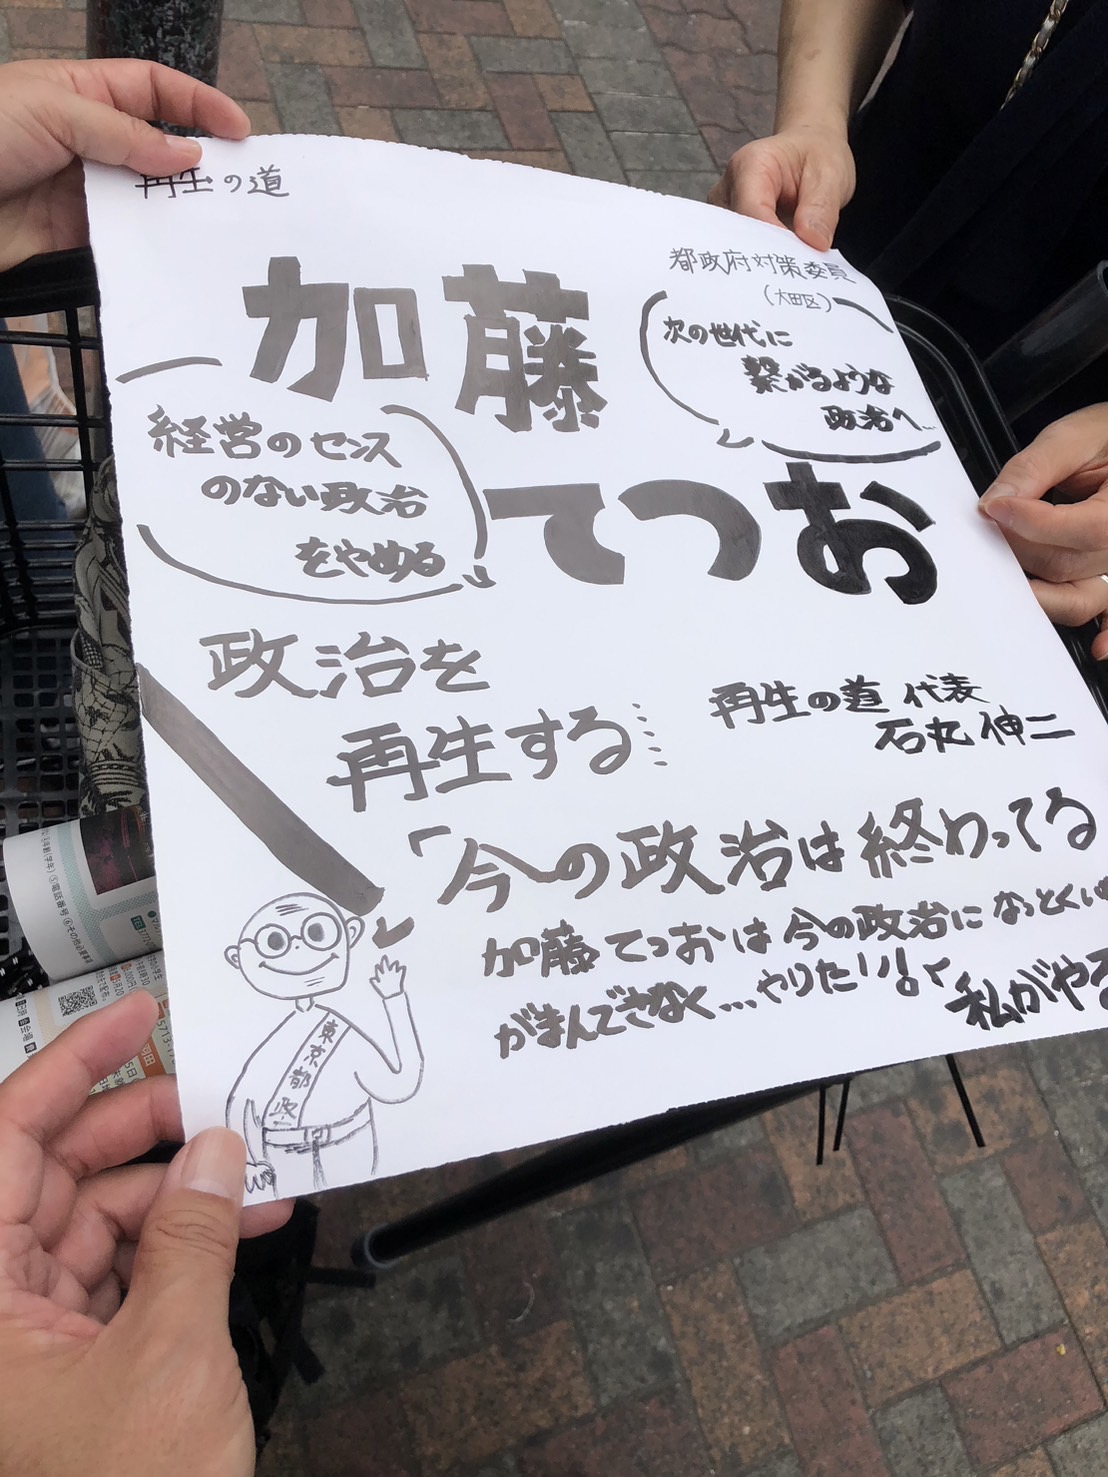 再生の道
都政府対策委員
(大田区)
加藤
てつお
次の世代に
繋がるような
政治へ…
経営のセンス
のない政治
をやめる
政治を
再生する
再生の道 代表
石丸伸二
「今の政治は終わってる
加藤てつおは今の政治になっとくい
がまんできなく…やりたい!」
私がやる
東京都政